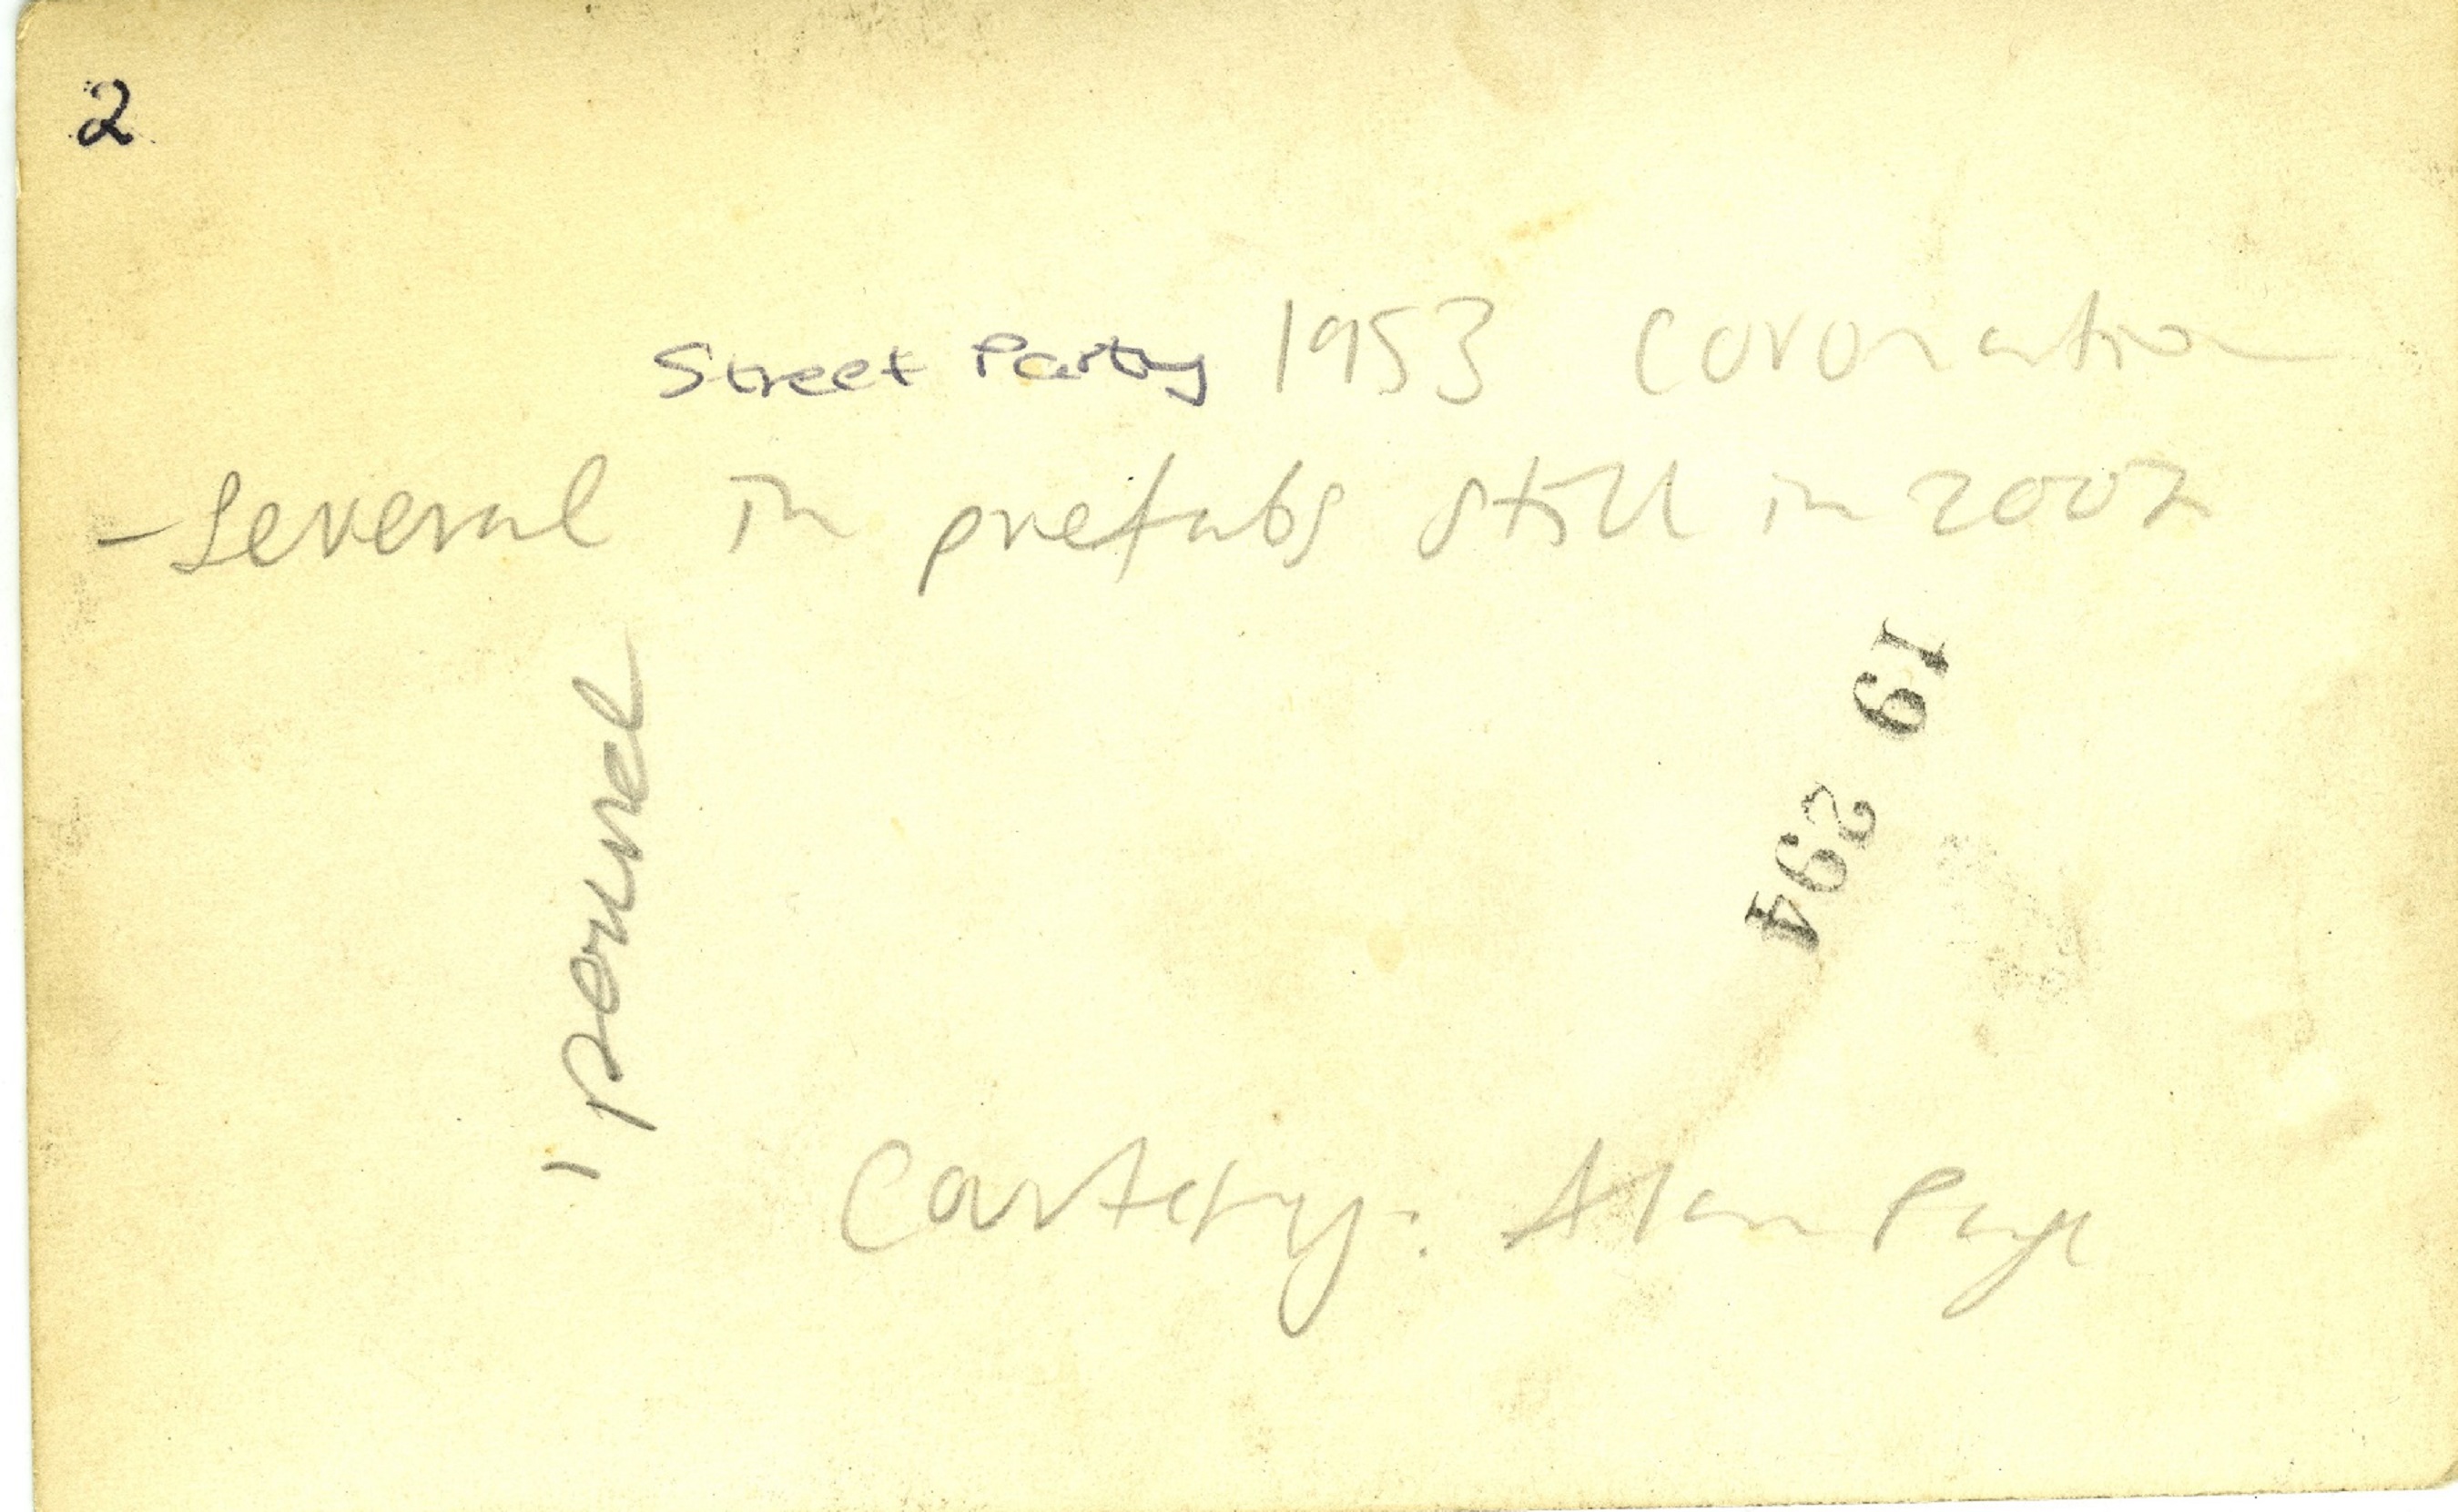 2
Street Party 1953 Coronation
- Several in prefabs still in 2002
19 294
Courtesy: Alan Page